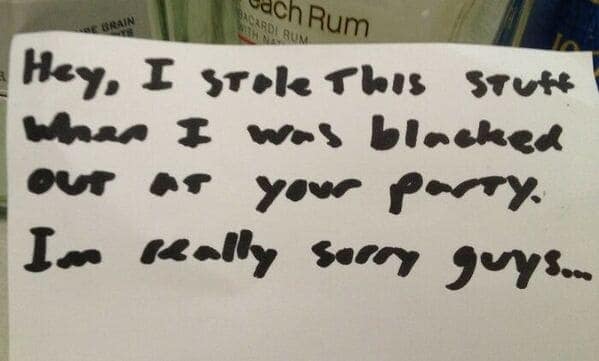 ach Rum
BACARDI RUM
WITH NAT
BRAIN
Hey, I stole This stuff
when I was blacked
out at your party.
Im really sorry guys...